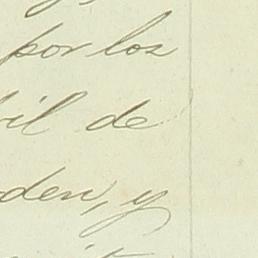 por los
il de
den, y